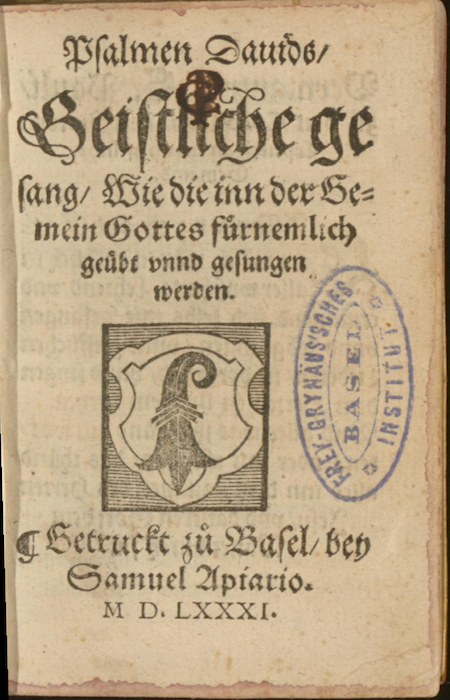 Psalmen Dauids/
Geistliche ge
sang/ Wie die inn der Ge=
mein Gottes fürnemlich
geübt vnnd gesungen
werden.
FREY-GRYNÄUS'SCHES
BASEL
INSTITUT
¶ Getruckt zů Basel/ bey
Samuel Apiario.
M D. LXXXI.